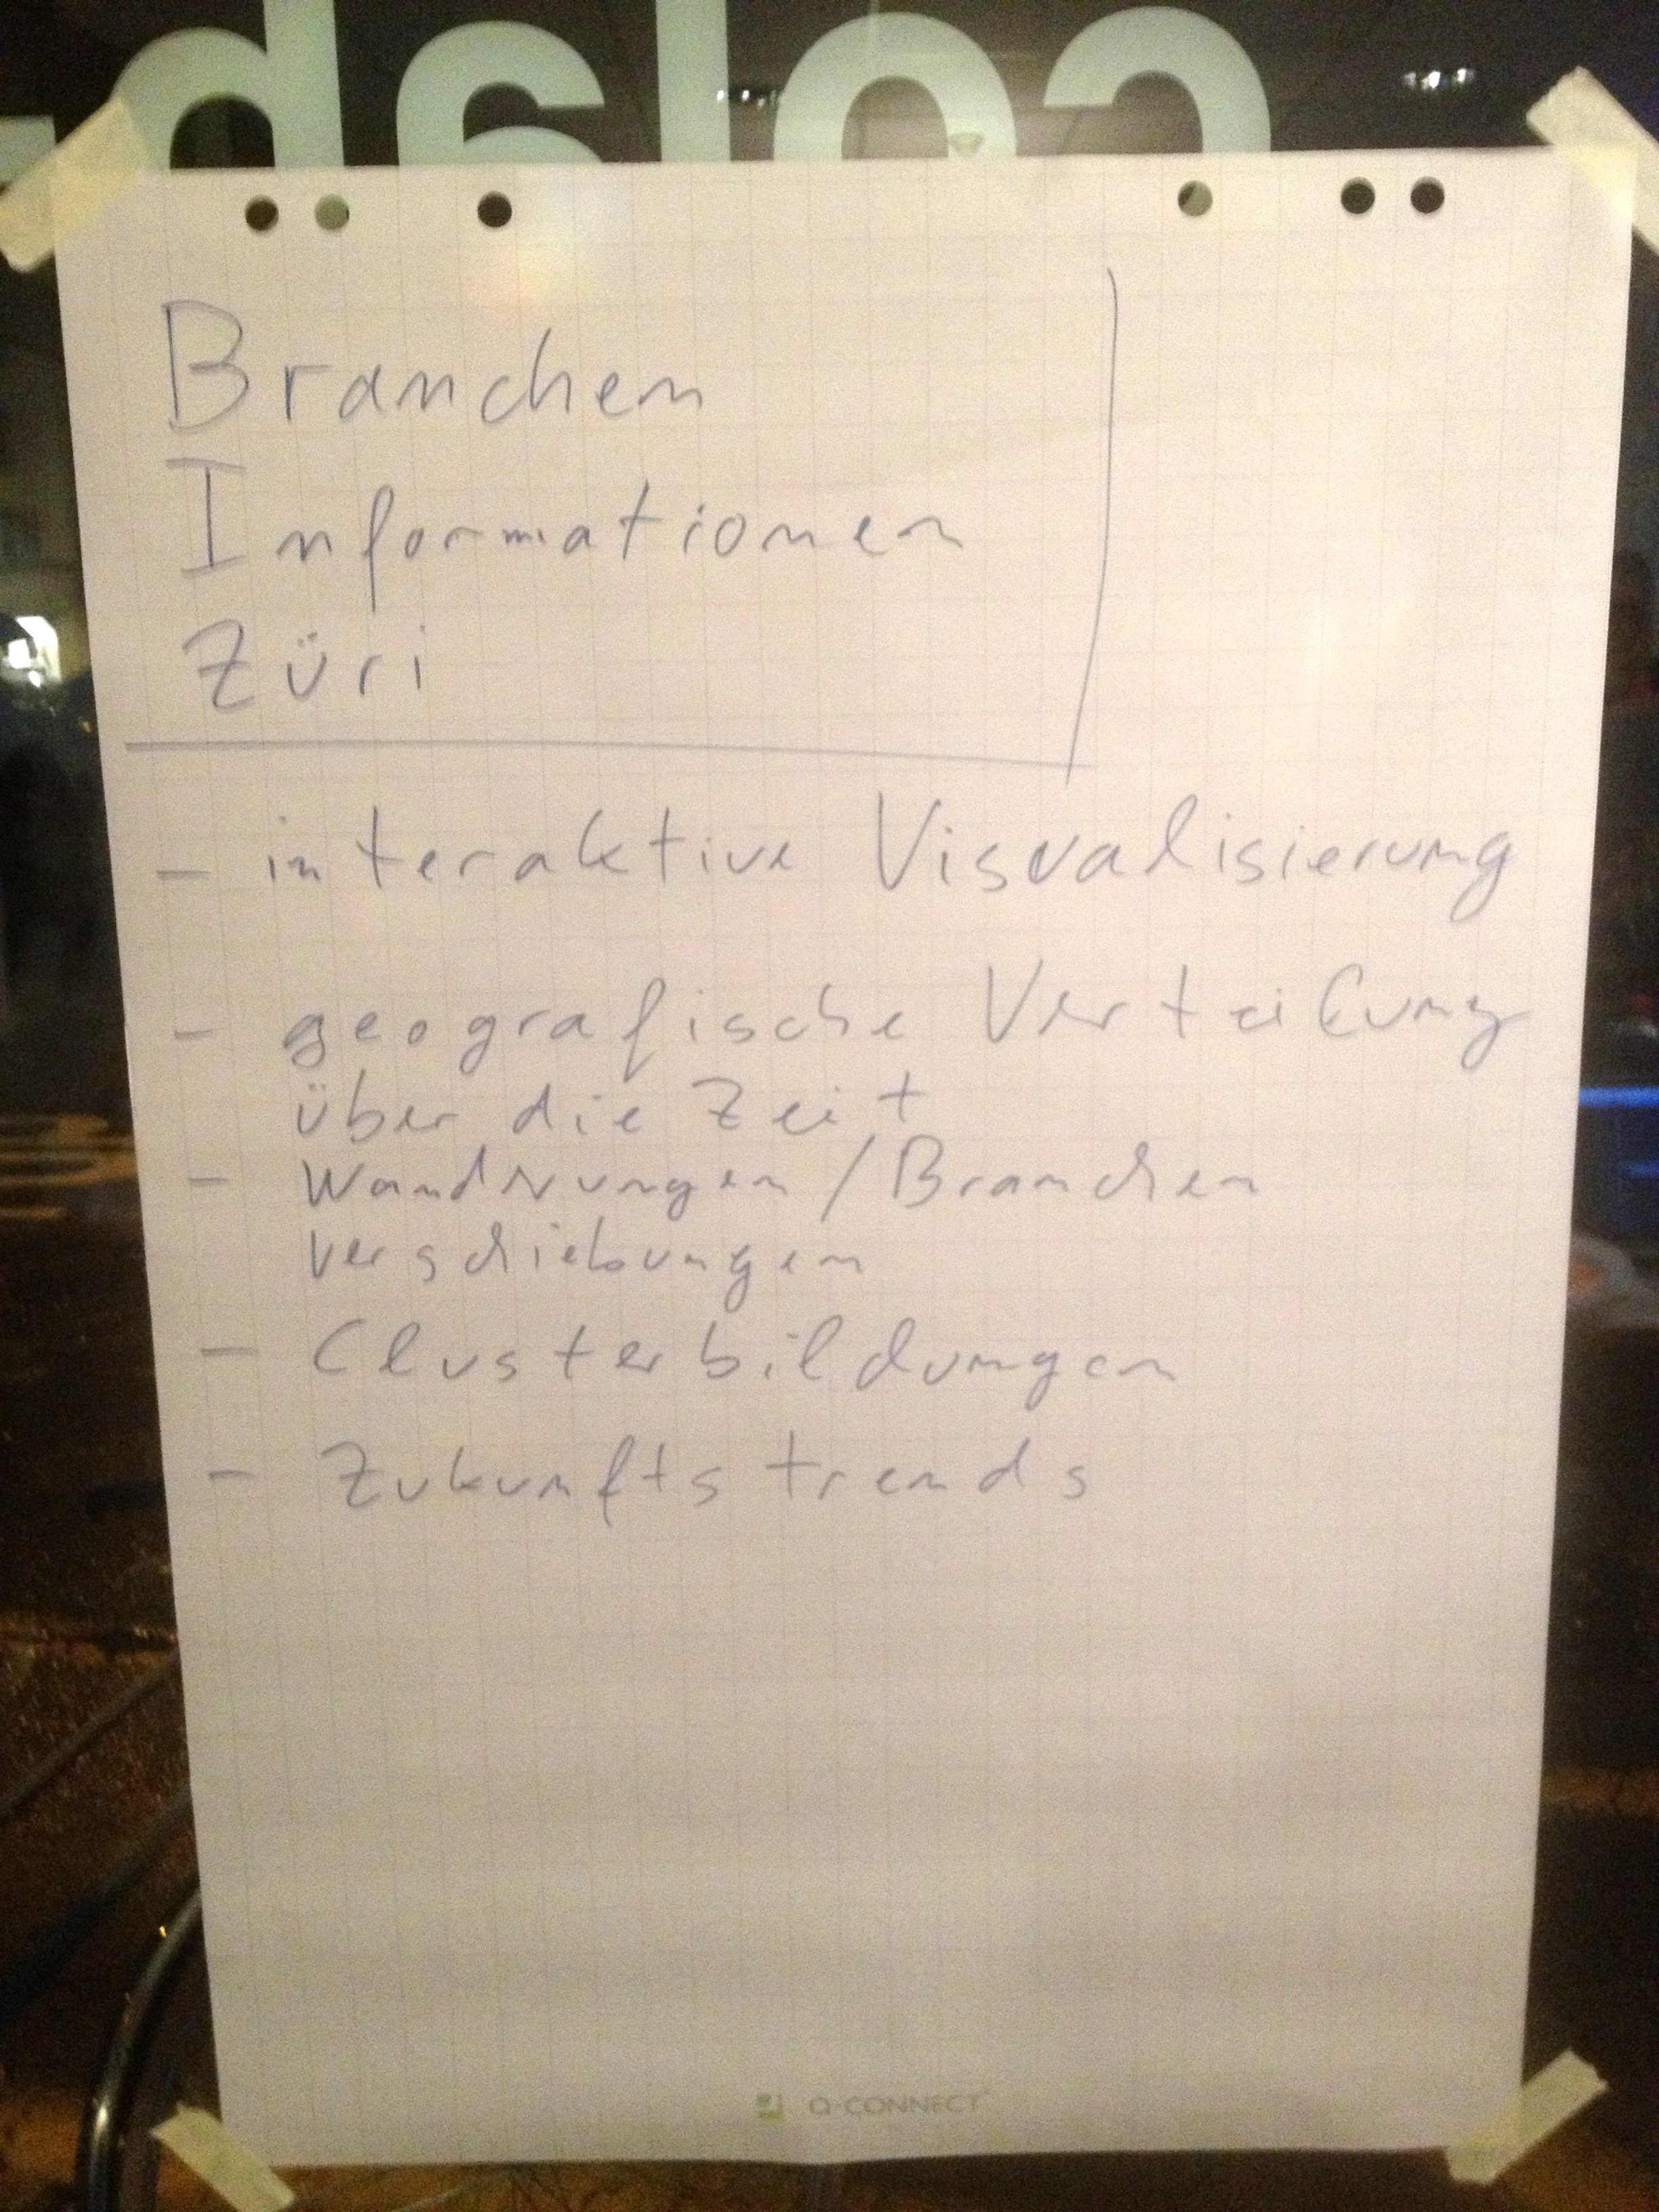 Branchen
Informationen
Züri
- interaktive Visualisierung
- geografische Verteilung
über die Zeit
- Wanderungen / Branchen
verschiebungen
- Clusterbildungen
- Zukunftstrends
Q-CONNECT